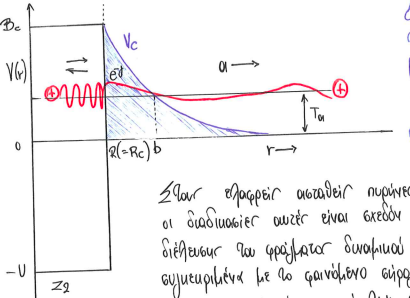 Bc
V(r)
Vc
a →
Tα
0
b
r →
-U
Z2
Στους ελαφρείς ασταθείς πυρήνες
οι διαδικασίες αυτές είναι σχεδόν
διέλευσης του φράγματος δυναμικού
συγκεκριμένα με το φαινόμενο σήρα